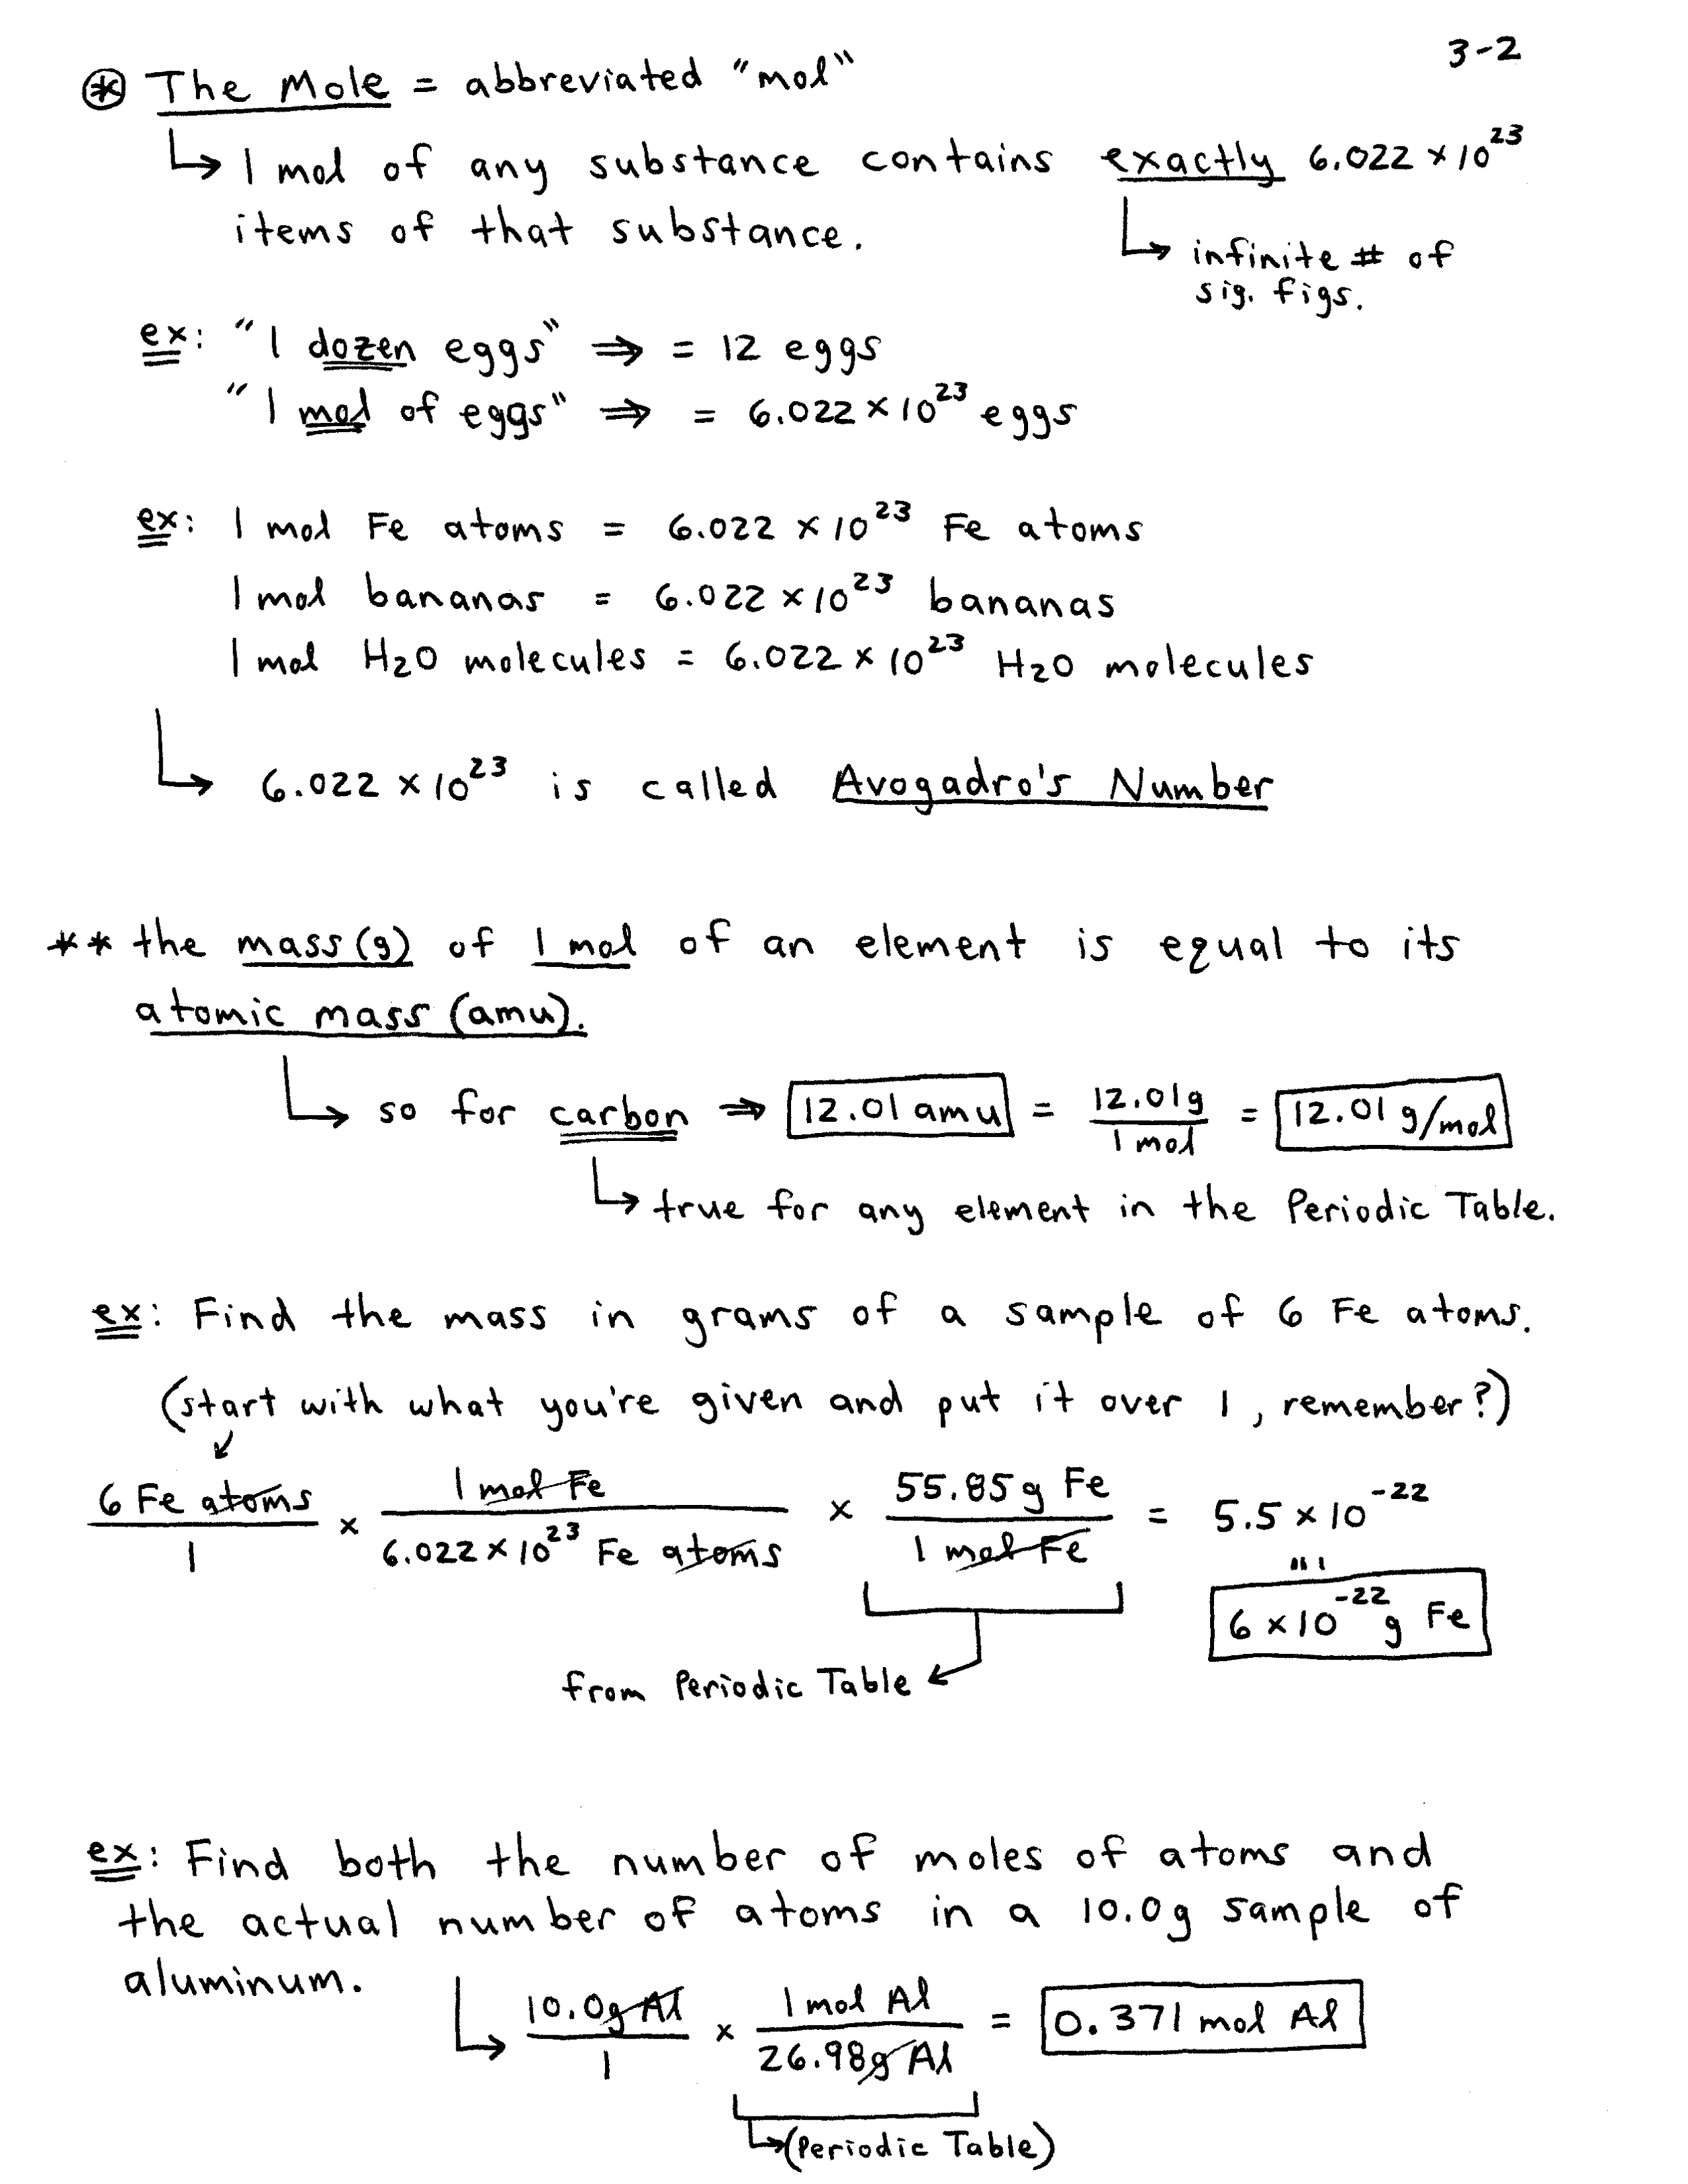 3-2
⊛ The Mole = abbreviated "mol"
↳ 1 mol of any substance contains exactly 6.022 × 10²³
items of that substance.
↳ infinite # of
sig. figs.
ex: "1 dozen eggs" ⇒ = 12 eggs
"1 mol of eggs" ⇒ = 6.022 × 10²³ eggs
ex: 1 mol Fe atoms = 6.022 × 10²³ Fe atoms
1 mol bananas = 6.022 × 10²³ bananas
1 mol H₂O molecules = 6.022 × 10²³ H₂O molecules
↳ 6.022 × 10²³ is called Avogadro's Number
** the mass (g) of 1 mol of an element is equal to its
atomic mass (amu).
↳ so for carbon ⇒ 12.01 amu = 12.01g / 1 mol = 12.01 g/mol
↳ true for any element in the Periodic Table.
ex: Find the mass in grams of a sample of 6 Fe atoms.
(start with what you're given and put it over 1, remember?)
6 Fe atoms / 1 × 1 mol Fe / 6.022 × 10²³ Fe atoms × 55.85 g Fe / 1 mol Fe = 5.5 × 10⁻²²
6 × 10⁻²² g Fe
from Periodic Table
ex: Find both the number of moles of atoms and
the actual number of atoms in a 10.0g sample of
aluminum.
↳ 10.0g Al / 1 × 1 mol Al / 26.98g Al = 0.371 mol Al
↳ (Periodic Table)